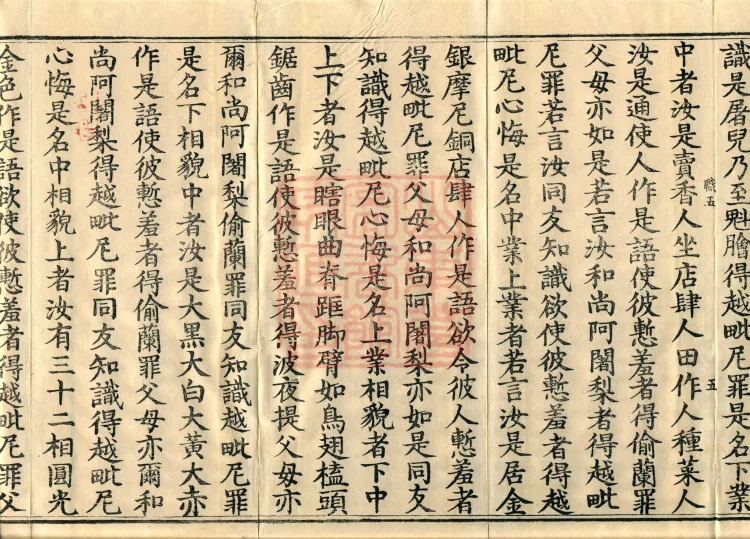 識是屠兒乃至魁膾得越毗尼罪是名下業
中者汝是賣香人坐店肆人田作人種菜人
汝是通使人作是語使彼慙羞者得偷蘭罪
父母亦如是若言汝和尚阿闍梨者得越毗
尼罪若言汝同友知識欲使彼慙羞者得越
毗尼心悔是名中業上業者若言汝是居金
銀摩尼銅店肆人作是語欲令彼人慙羞者
得越毗尼罪父母和尚阿闍梨亦如是同友
知識得越毗尼心悔是名上業相貌者下中
上下者汝是瞎眼曲脊跛脚臂如鳥翅榼頭
鋸齒作是語使彼慙羞者得波夜提父母亦
爾和尚阿闍梨偷蘭罪同友知識越毗尼罪
是名下相貌中者汝是大黑大白大黃大赤
作是語使彼慙羞者得偷蘭罪父母亦爾和
尚阿闍梨得越毗尼罪同友知識得越毗尼
心悔是名中相貌上者汝有三十二相圓光
金色作是語欲使彼慙羞者得越毗尼罪父
職五
五